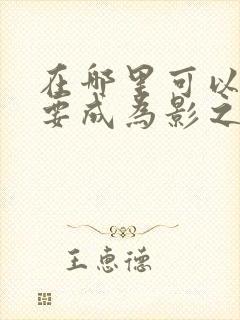 在哪里可以
要成为影之
王惠德